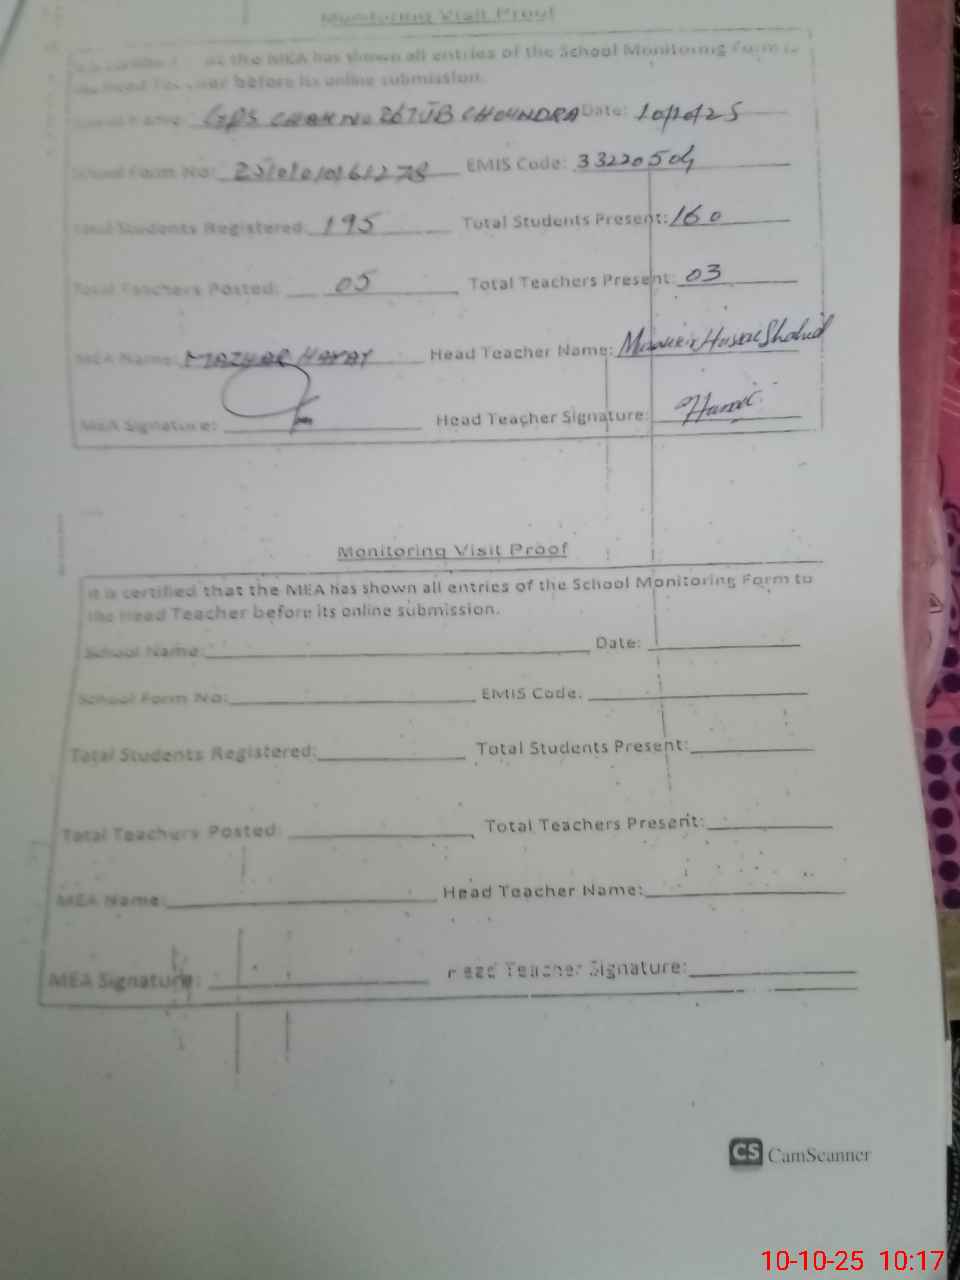 Monitoring Visit Proof
the MEA has shown all entries of the School Monitoring Form to
before its online submission.
School Name: GPS CHAK NO 267JB CHOUNDRA Date: 10/10/25
School Form No: EMIS Code: 33220504
Total Students Registered: 195 Total Students Present: 160
Total Teachers Posted: 05 Total Teachers Present: 03
MEA Name: MAZHAR HAYAT Head Teacher Name: Shahid
MEA Signature: Head Teacher Signature:
Monitoring Visit Proof
It is certified that the MEA has shown all entries of the School Monitoring Form to
the Head Teacher before its online submission.
School Name: Date:
School Form No: EMIS Code:
Total Students Registered: Total Students Present:
Total Teachers Posted: Total Teachers Present:
MEA Name: Head Teacher Name:
MEA Signature: Head Teacher Signature:
CS CamScanner
10-10-25 10:17